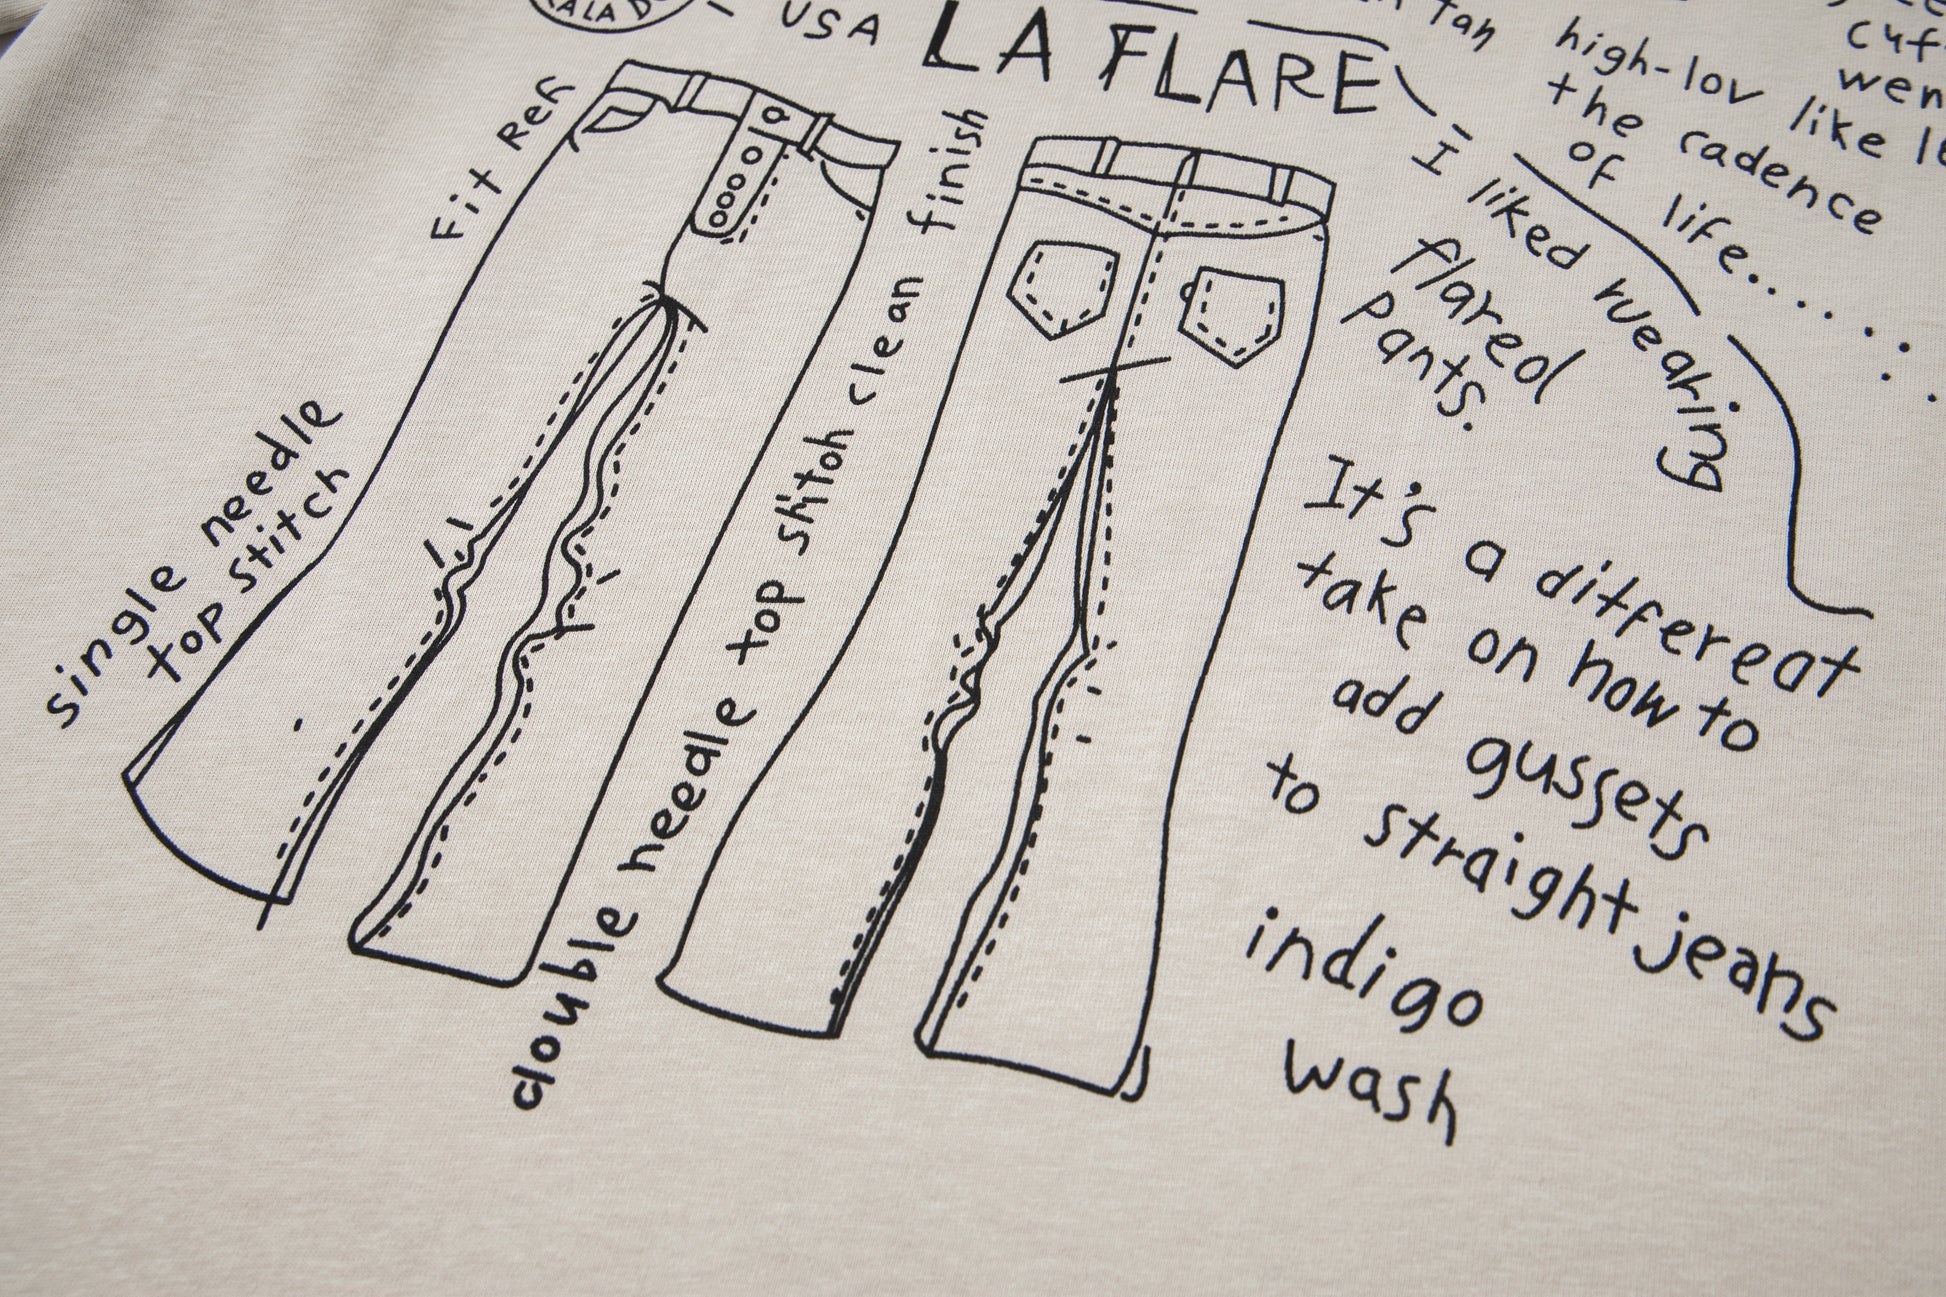 ALA D
USA
LA FLARE
tan
high-lov like
the cadence
of life.....
cuf
wen
Fit Ref
I liked wearing
flared
pants.
single needle
top stitch
double needle top stitch clean finish
It's a ditfereat
take on how to
add gussets
to straight jeans
indigo
wash